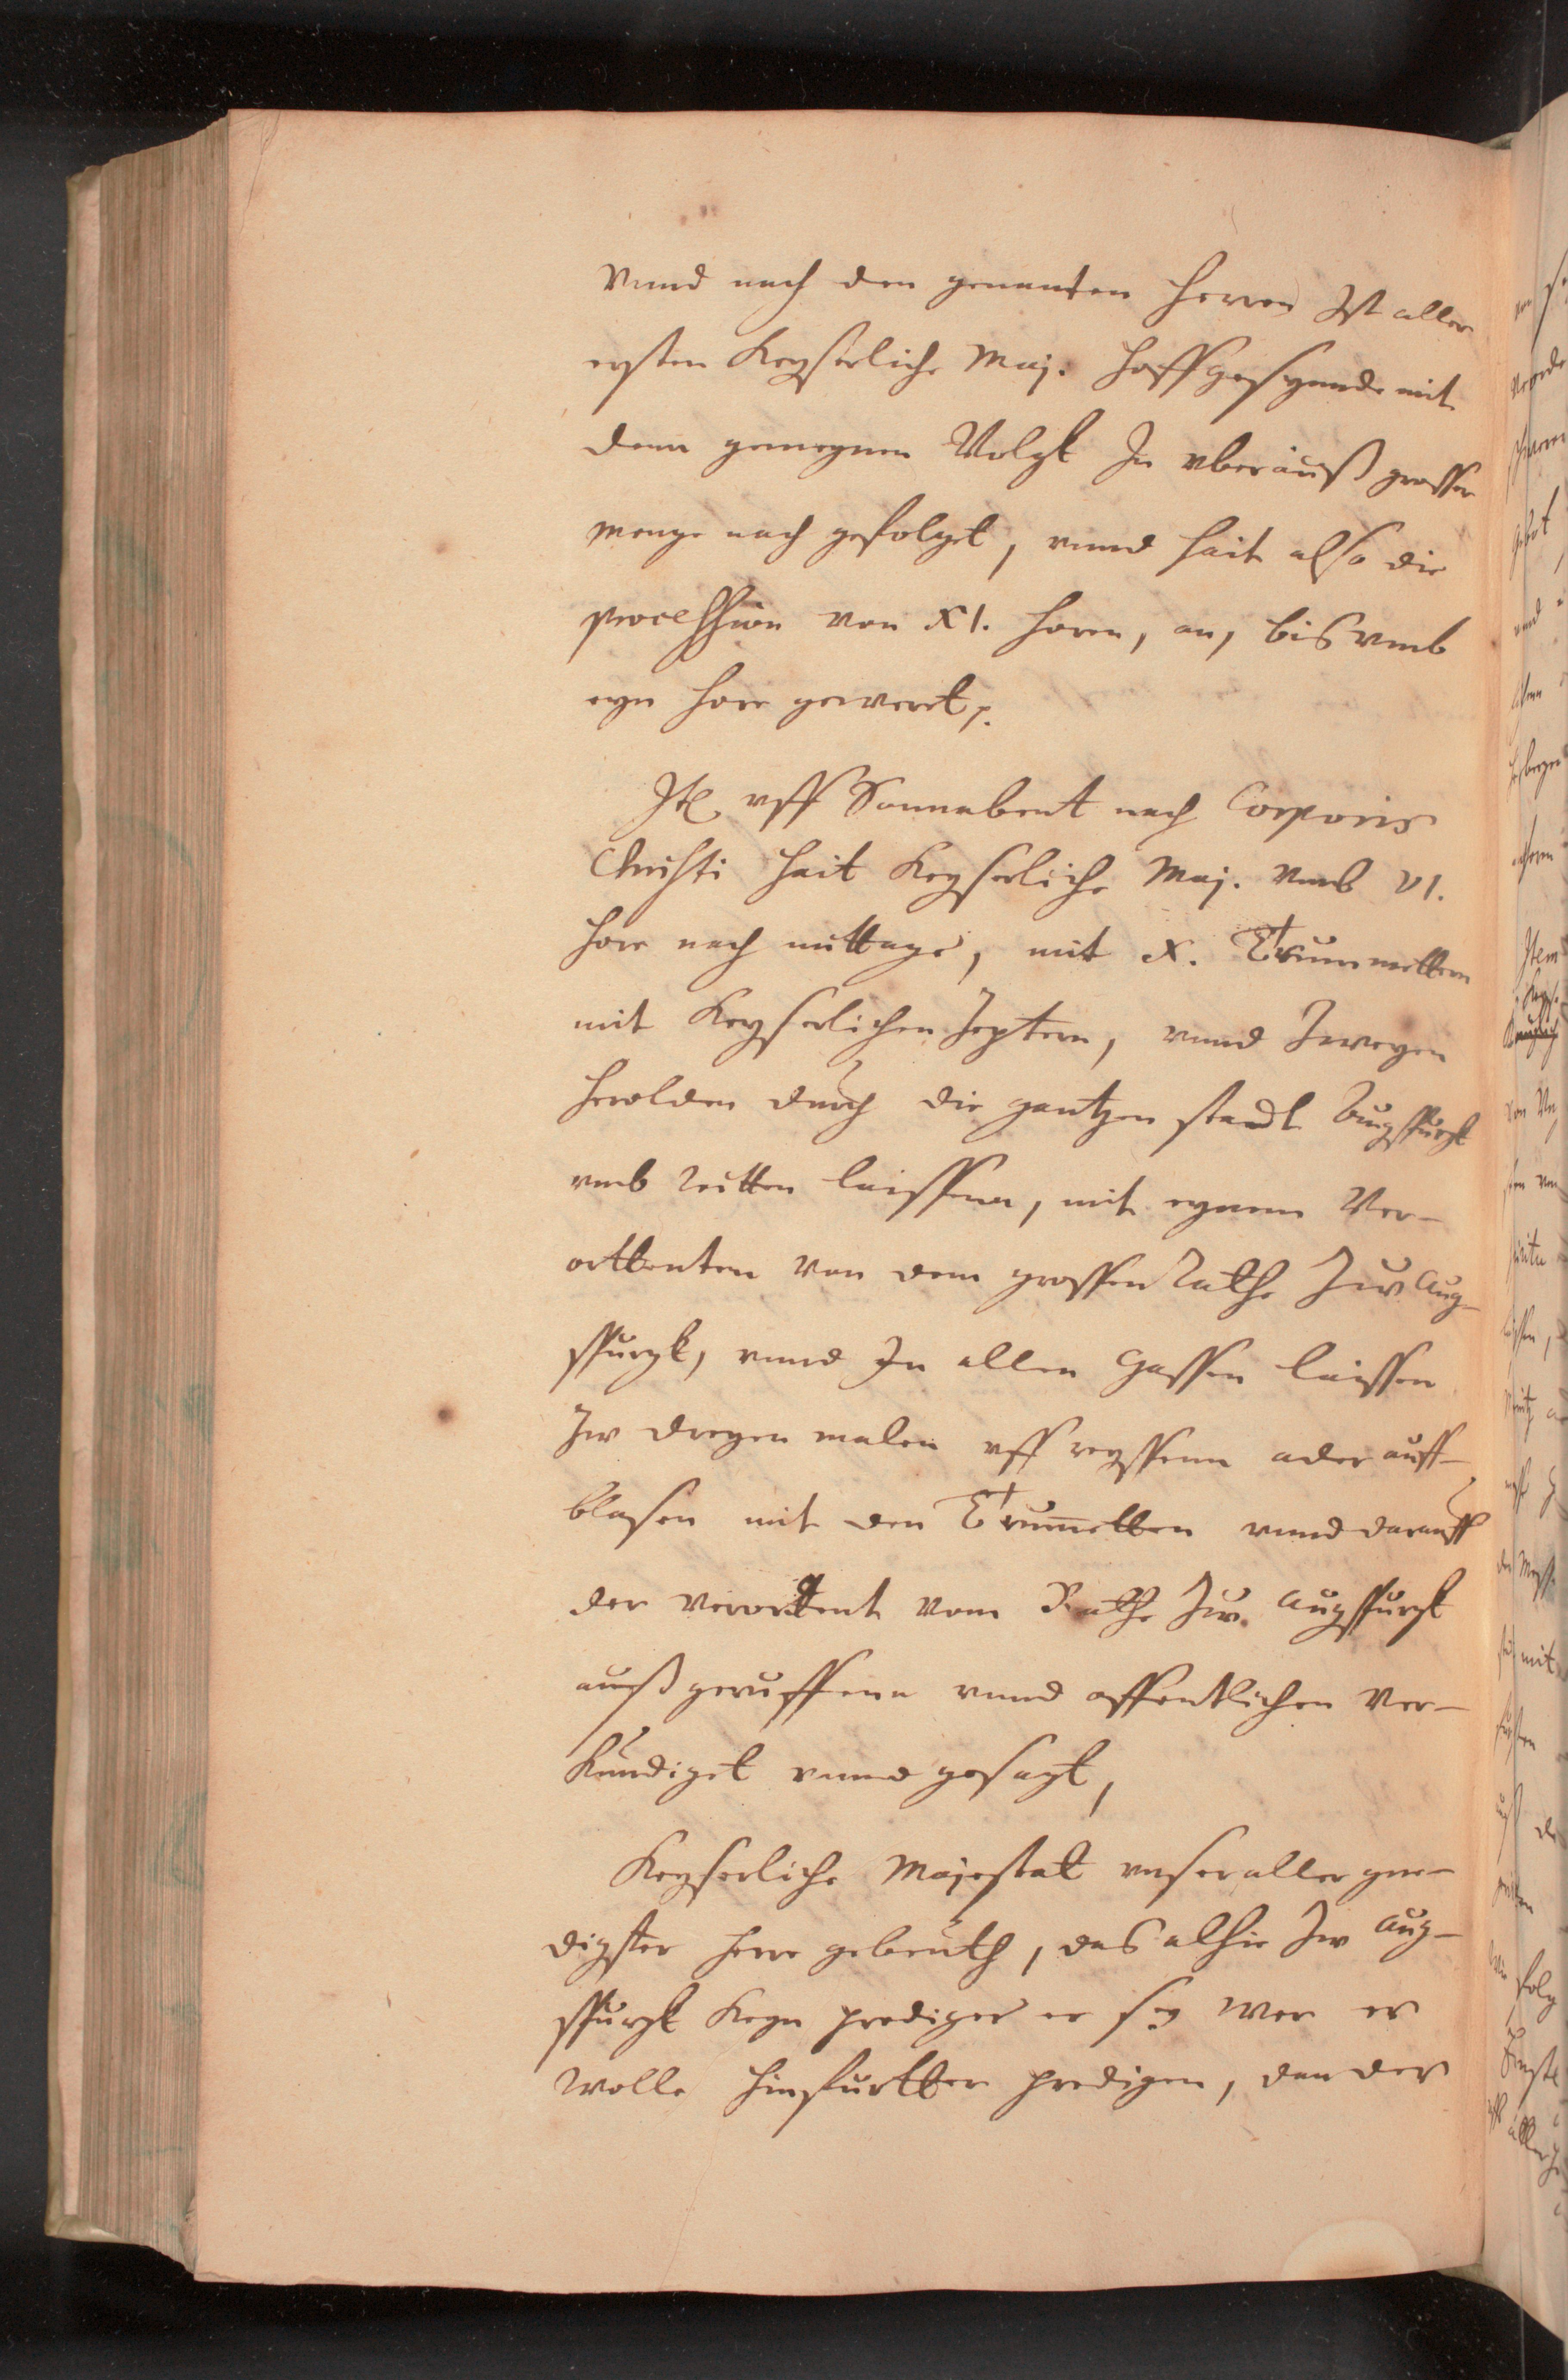 vnnd nach den genanten Herren Ist aller
ersten Keyserliche Maj. Hoffgesynnde mit
dem gemeynen Volgk In vberauß grosser
menge nach gefolget, vnnd hait also die
procession von XI. Horen, an, bis vmb
eyn Hore geweret.
Itē vff Sonnabent nach Corporis
Christi hait Keyserliche Maj. vmb VI.
hore nach mittage, mit X. Trummettern
mit Keyserlichen Zeptern, vnnd Zweyen
Herolden durch die gantzen stadt Augspurgk
vmb reitten laissenn, mit eynem Ver-
ottenten von dem grossen Rathe Zw Aug-
spurgk, vnnd In allen Gassen laissen
Zw dreyen malen vff reyssenn ader auff-
blasen mit den Trum̄etten vnnd darauff
der verordtent vom Rathe Zw Augspurgk
außgeruffenn vnnd offentlichen Ver-
kundiget vnnd gesagt,
Keyserliche Majestat vnser aller gne-
digster Herre gebeuth, das alhie Zw Aug-
spurgk Keyn prediger er sey wer er
wolle hinfurtter predigen, dan der